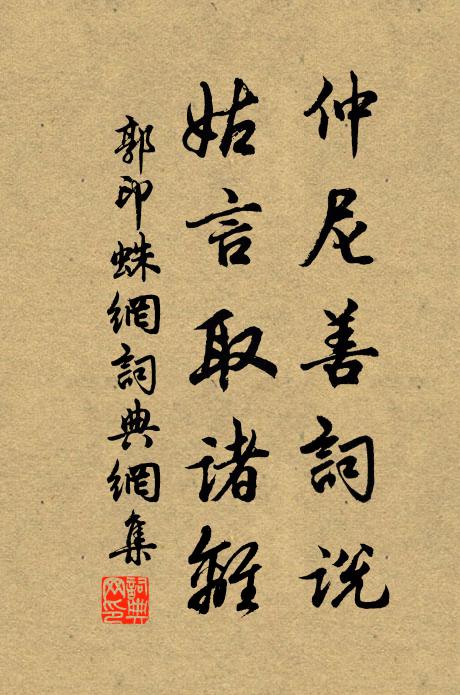 仲尼善詞說
姑言取諸離
郭印蛛網詞典網集
詞典网印